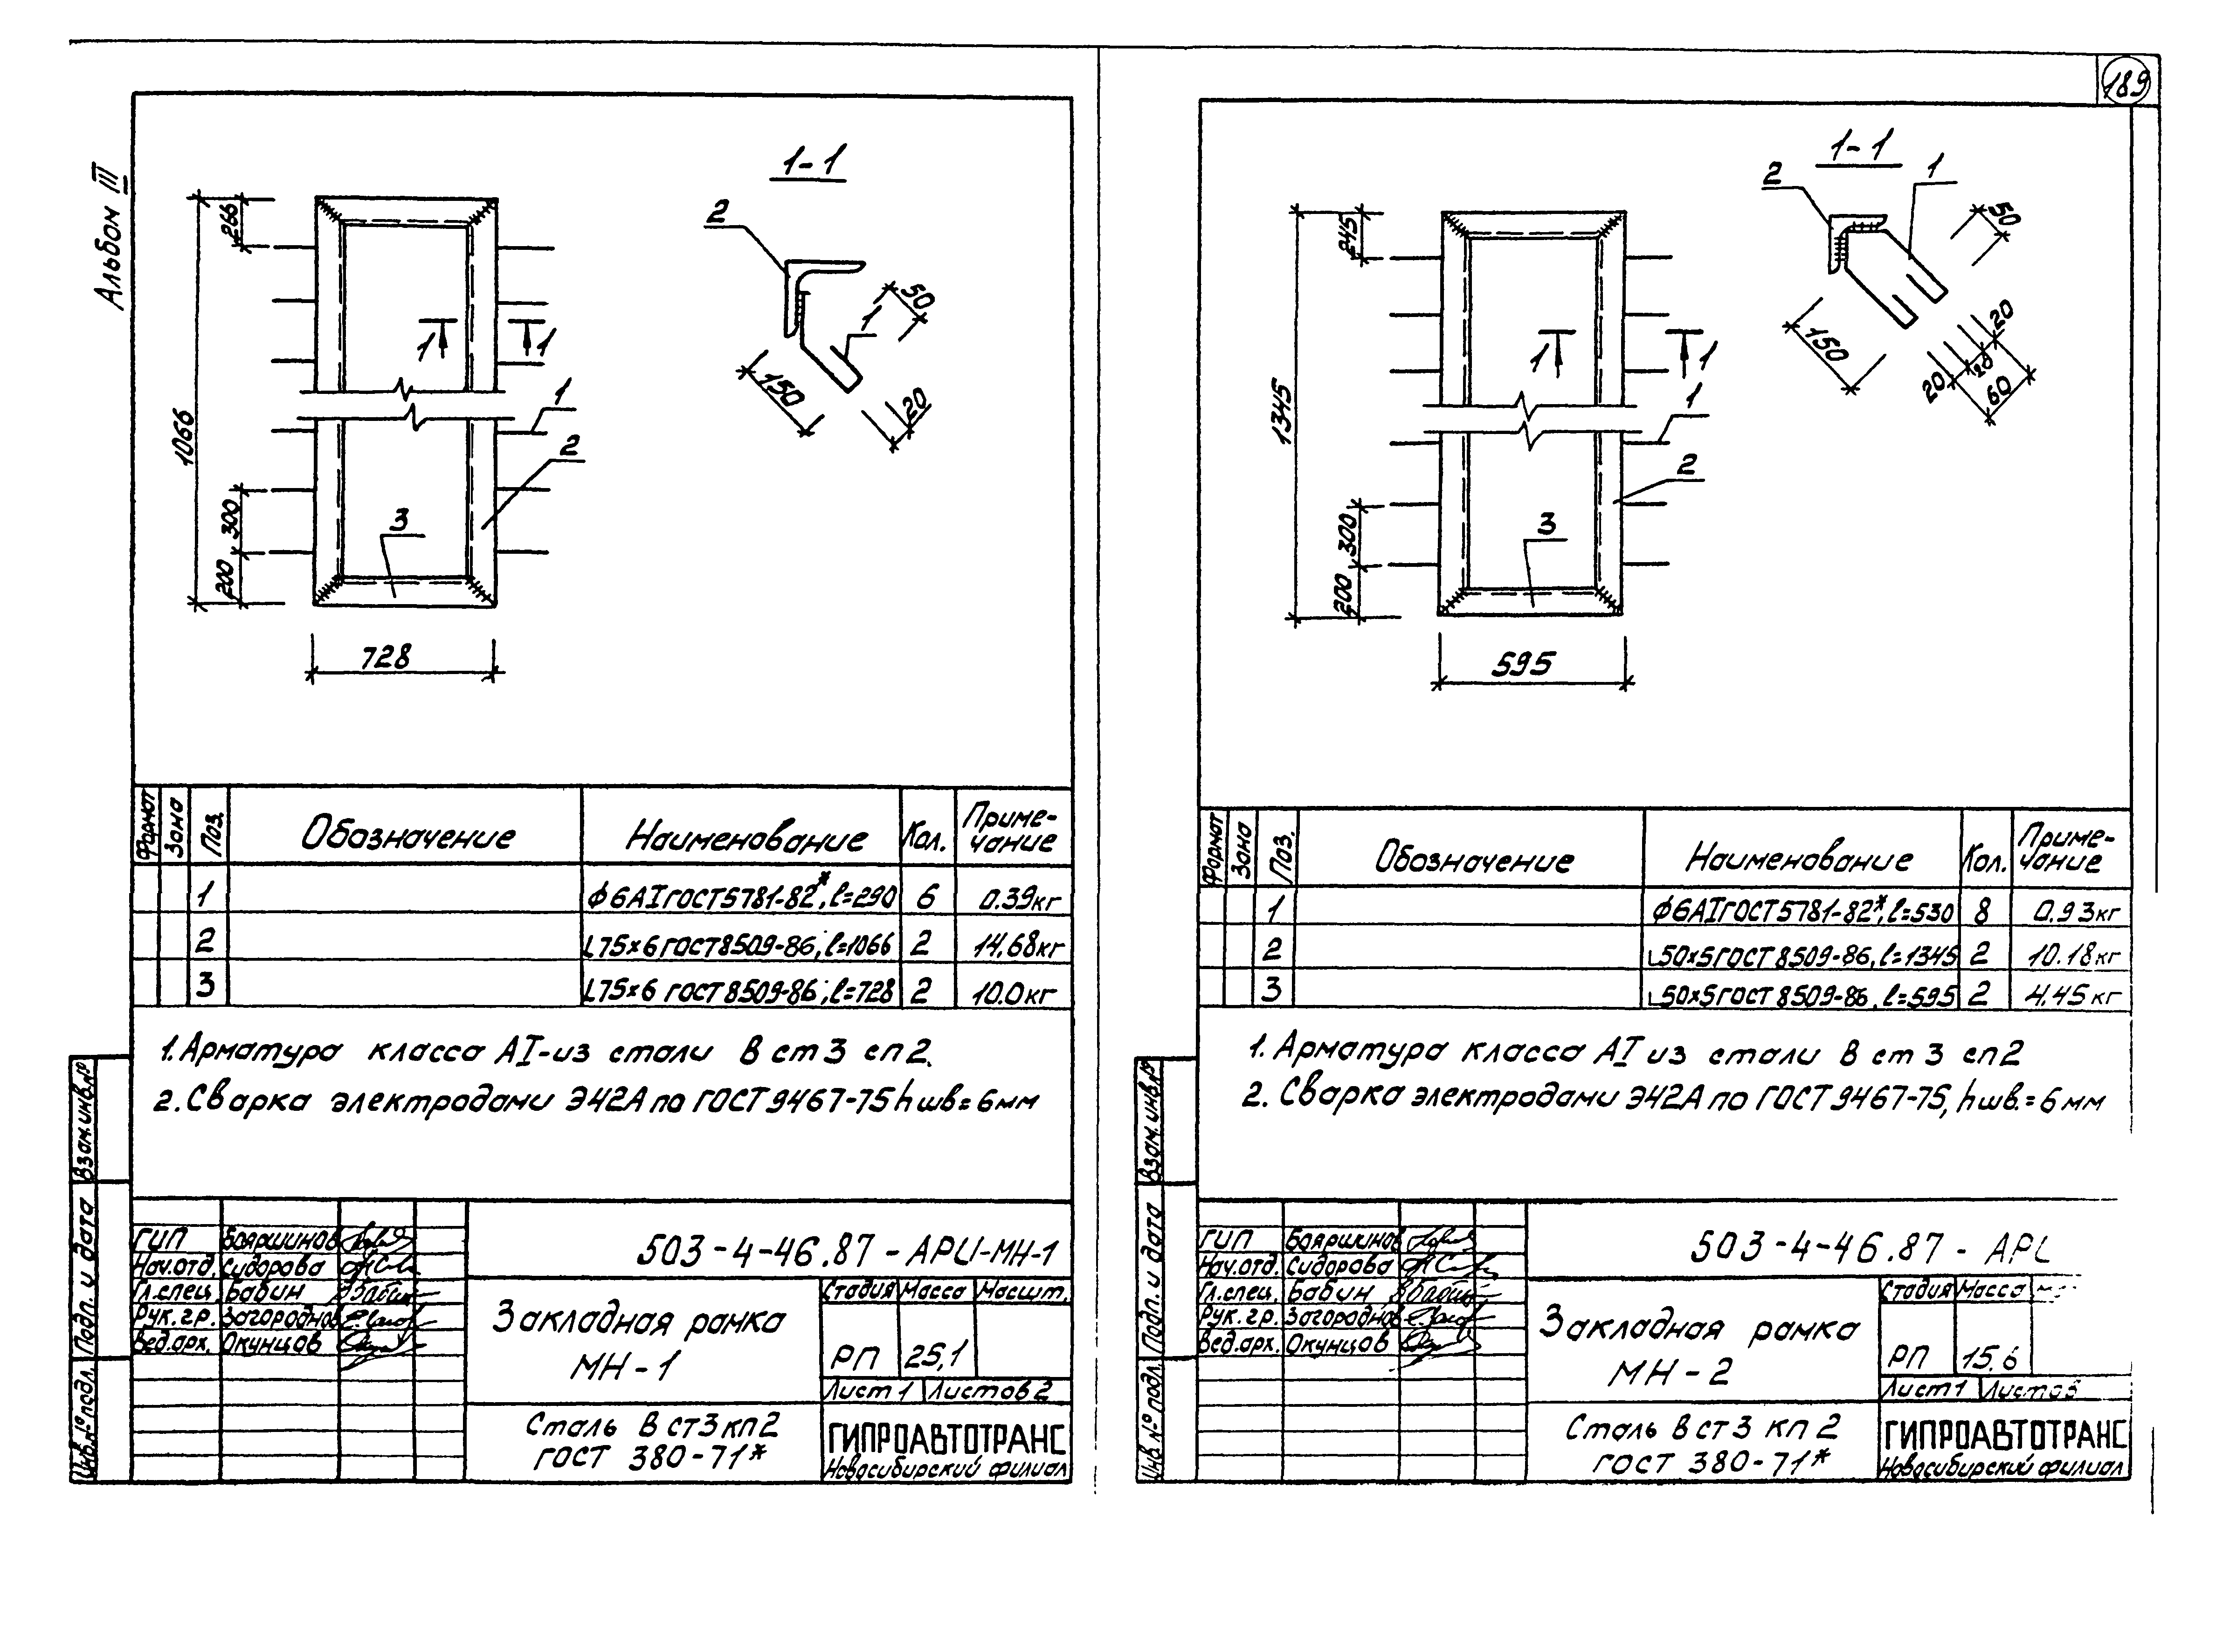 Альбом III
1-1
266
1066
300
200
728
1
1
1
2
3
2
1
50
150
20
Формат Зона Поз. Обозначение Наименование Кол. Приме-
чание
1 ф6АI ГОСТ 5781-82*, ℓ=290 6 0.39кг
2 L75×6 ГОСТ 8509-86, ℓ=1066 2 14.68кг
3 L75×6 ГОСТ 8509-86, ℓ=728 2 10.0кг
1. Арматура класса АI-из стали В ст 3 сп2.
2. Сварка электродами Э42А по ГОСТ 9467-75 hшв=6мм
Взам.инв.№
Подп. и дата
Инв.№ подл.
ГИП Бояршинов
Нач.отд. Сидорова
Гл.спец. Бабин
Рук.гр. Загороднов
Вед.арх. Окунцов
503-4-46.87-АРИ-МН-1
Закладная рамка
МН-1
Стадия Масса Масшт.
РП 25,1
Лист 1 Листов 2
Сталь В ст 3 кп 2
ГОСТ 380-71*
ГИПРОАВТОТРАНС
Новосибирский филиал
189
1-1
245
1345
300
200
595
1
1
1
2
3
2
1
50
150
20
20
20
60
Формат Зона Поз. Обозначение Наименование Кол. Приме-
чание
1 ф6АI ГОСТ 5781-82*, ℓ=530 8 0.93кг
2 L50×5 ГОСТ 8509-86, ℓ=1345 2 10.18кг
3 L50×5 ГОСТ 8509-86, ℓ=595 2 4.45кг
1. Арматура класса АI из стали В ст 3 сп2
2. Сварка электродами Э42А по ГОСТ 9467-75, hшв.=6мм
Взам.инв.№
Подп. и дата
Инв.№ подл.
ГИП Бояршинов
Нач.отд. Сидорова
Гл.спец. Бабин
Рук.гр. Загороднов
Вед.арх. Окунцов
503-4-46.87-АР
Закладная рамка
МН-2
Стадия Масса
РП 15.6
Лист 1 Листов
Сталь В ст 3 кп 2
ГОСТ 380-71*
ГИПРОАВТОТРАНС
Новосибирский филиал